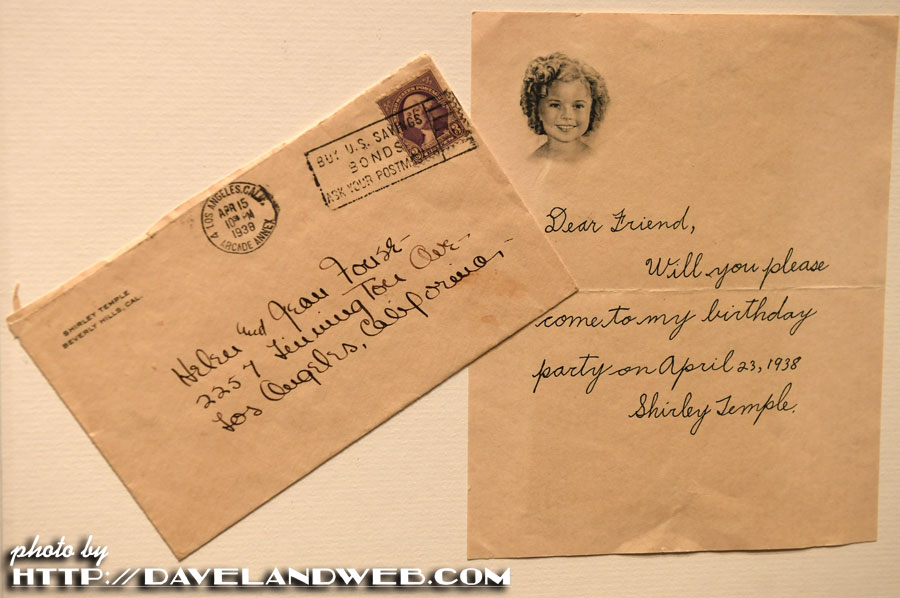 SHIRLEY TEMPLE
BEVERLY HILLS, CAL.
LOS ANGELES, CALIF.
APR 15
10 PM
1938
ARCADE ANNEX
BUY U.S. SAVINGS
BONDS
ASK YOUR POSTM
Helen and Jean House
2257 Linnington Ave
Los Angeles, California,
Dear Friend,
Will you please
come to my birthday
party on April 23, 1938
Shirley Temple.
photo by
HTTP://DAVELANDWEB.COM